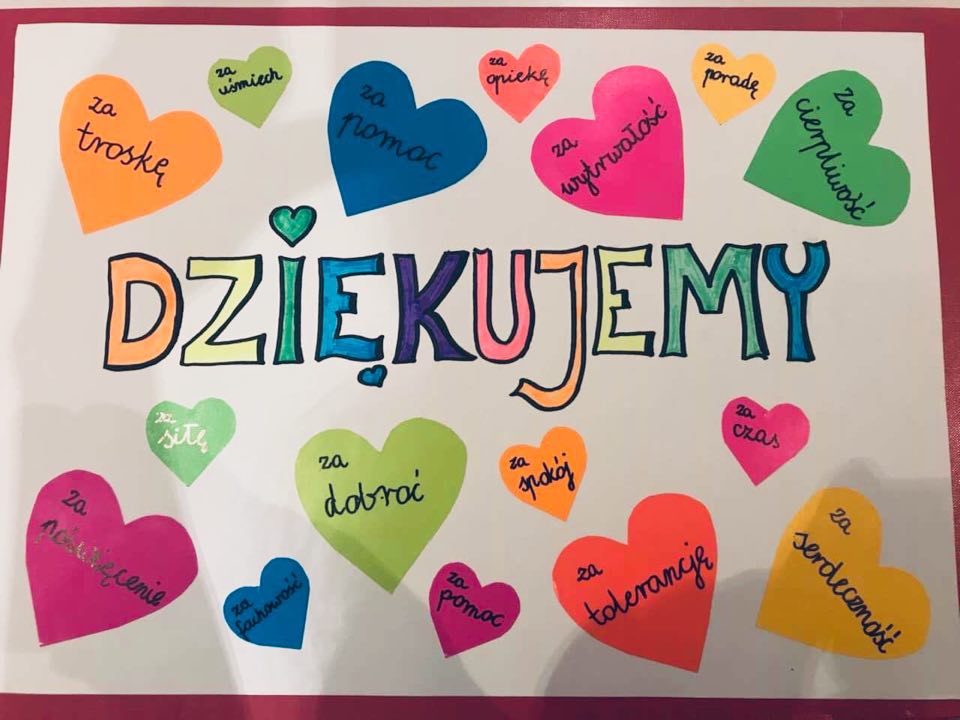 za
troskę
za
uśmiech
za
pomoc
za
opiekę
za
wytrwałość
za
poradę
za
cierpliwość
DZIĘKUJEMY
za
siłę
za
dobroć
za
spokój
za
czas
za
poświęcenie
za
fachowość
za
pomoc
za
tolerancję
za
serdeczność